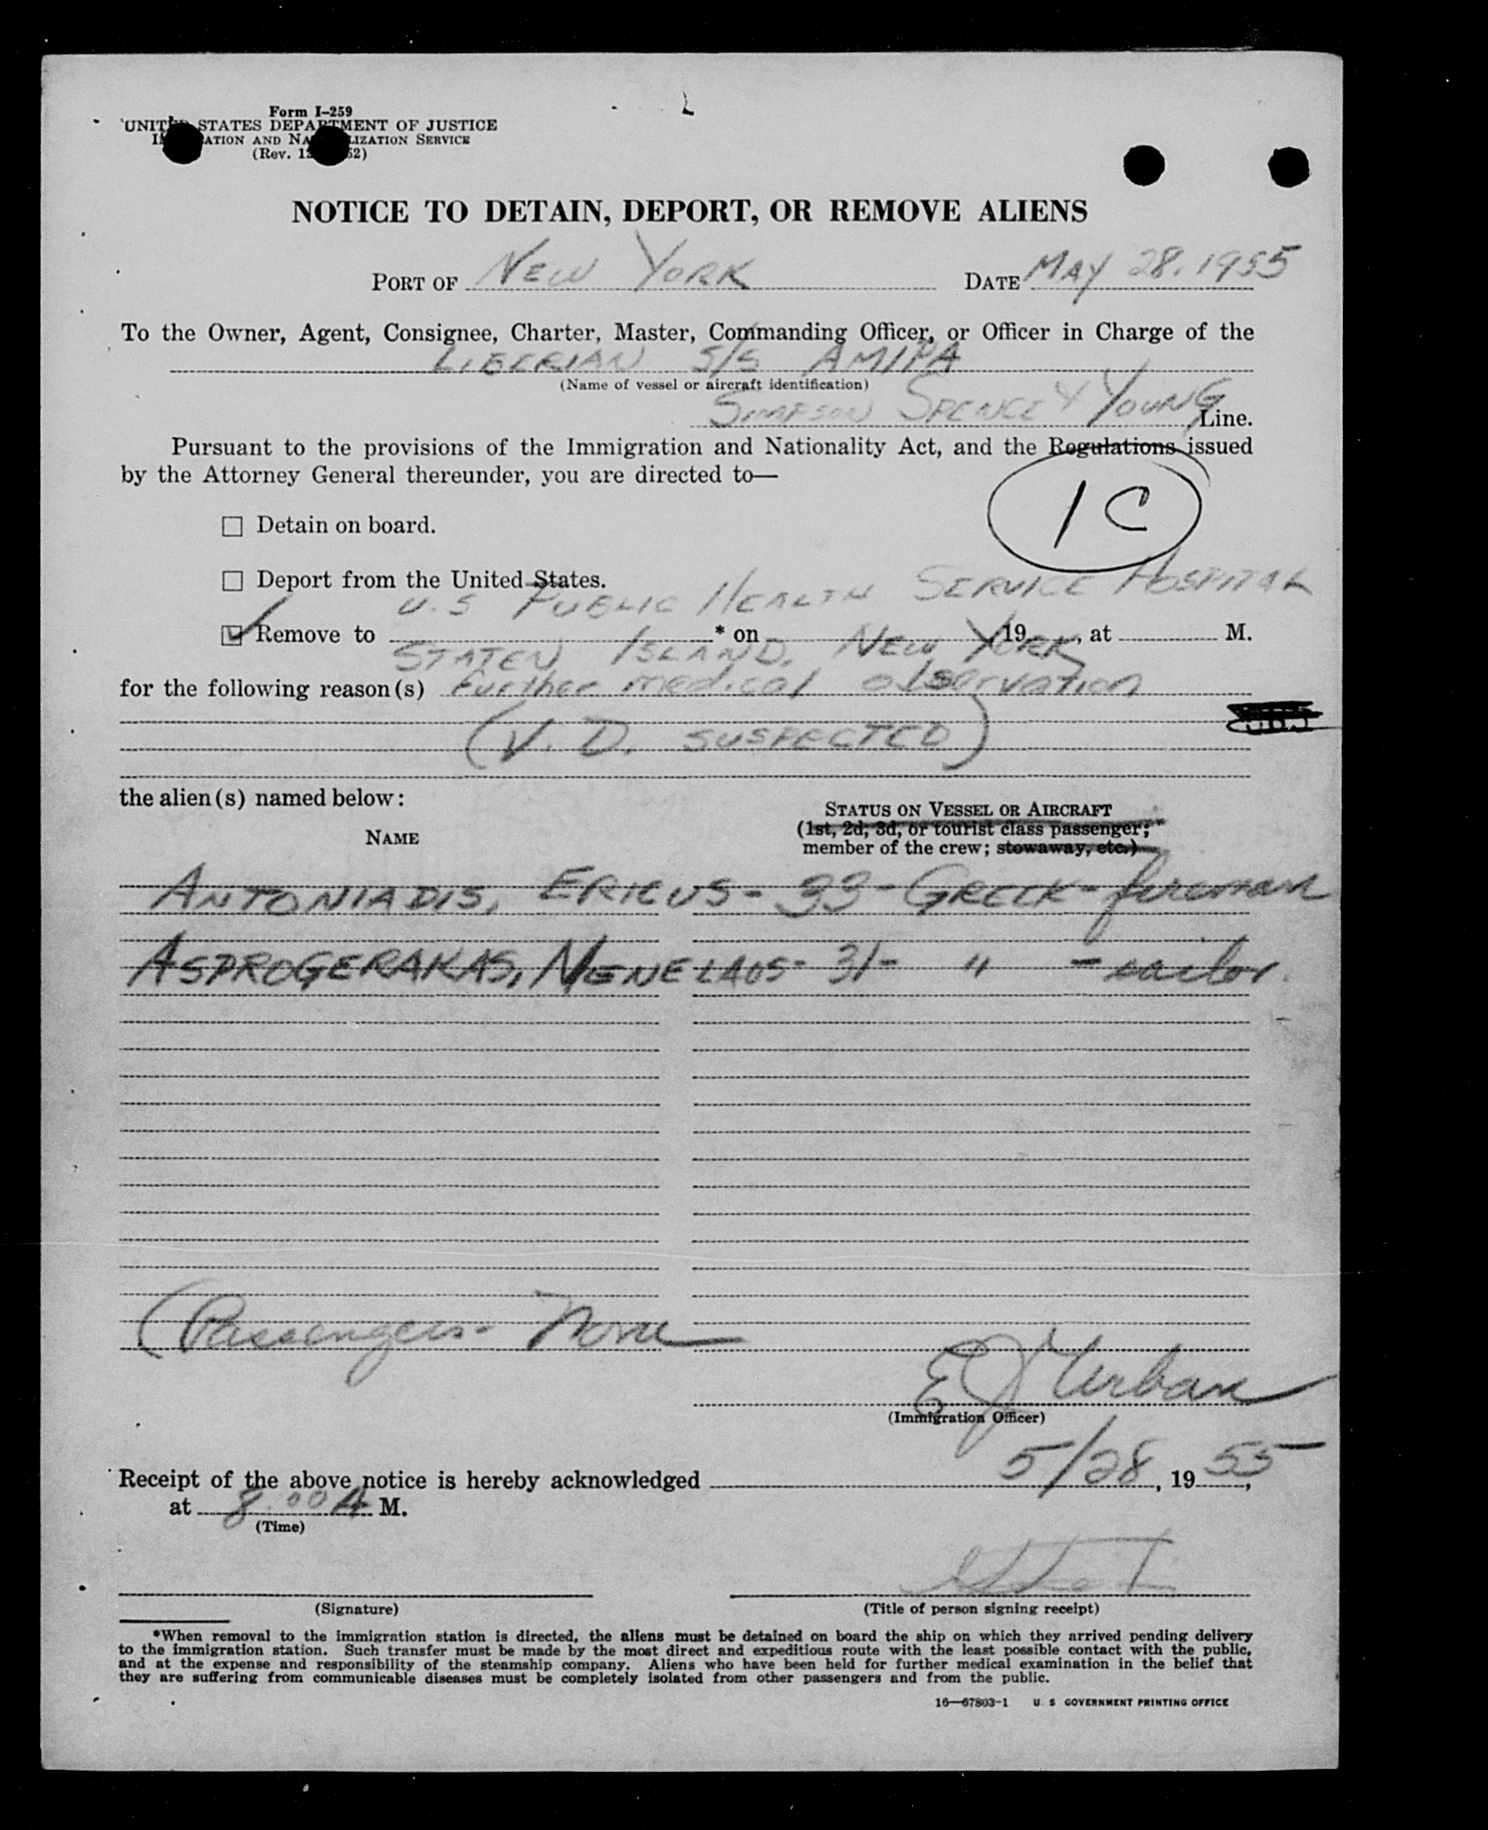 Form I-259
UNITED STATES DEPARTMENT OF JUSTICE
IMMIGRATION AND NATURALIZATION SERVICE
(Rev. 52)
NOTICE TO DETAIN, DEPORT, OR REMOVE ALIENS
PORT OF NEW YORK DATE MAY 28, 1955
To the Owner, Agent, Consignee, Charter, Master, Commanding Officer, or Officer in Charge of the
LIBERIAN S/S AMIPA
(Name of vessel or aircraft identification)
SIMPSON SPENCE & YOUNG Line.
Pursuant to the provisions of the Immigration and Nationality Act, and the Regulations issued
by the Attorney General thereunder, you are directed to—
1C
☐ Detain on board.
☐ Deport from the United States.
U.S PUBLIC HEALTH SERVICE HOSPITAL
☑ Remove to * on , 19 , at M.
STATEN ISLAND, NEW YORK
for the following reason(s) further medical observation
(V. D. SUSPECTED)
the alien(s) named below:
STATUS ON VESSEL OR AIRCRAFT
NAME (1st, 2d, 3d, or tourist class passenger;
member of the crew; stowaway, etc.)
ANTONIADIS, ERICUS - 33 - GREEK - fireman
ASPROGERAKAS, MENELAOS - 31 - " - sailor.
(Passengers - None
E J Urban
(Immigration Officer)
Receipt of the above notice is hereby acknowledged 5/28, 1955,
at 8:00 A M.
(Time)
(Signature) (Title of person signing receipt)
*When removal to the immigration station is directed, the aliens must be detained on board the ship on which they arrived pending delivery
to the immigration station. Such transfer must be made by the most direct and expeditious route with the least possible contact with the public,
and at the expense and responsibility of the steamship company. Aliens who have been held for further medical examination in the belief that
they are suffering from communicable diseases must be completely isolated from other passengers and from the public.
16—67803-1 U. S GOVERNMENT PRINTING OFFICE